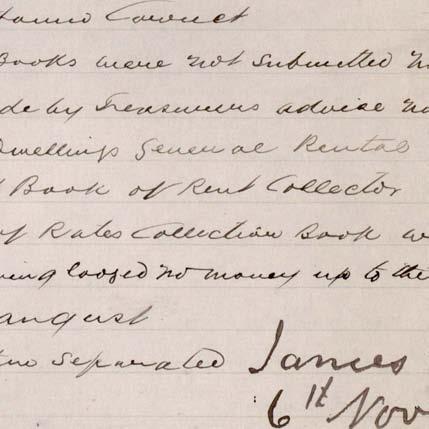 found Correct
Books were not submitted
de by Treasurers advise no
Dwellings General Rental
Book of Rent Collector
of Rates Collection Book w
ving lodged no money up to the
august
separated James
6th Nov